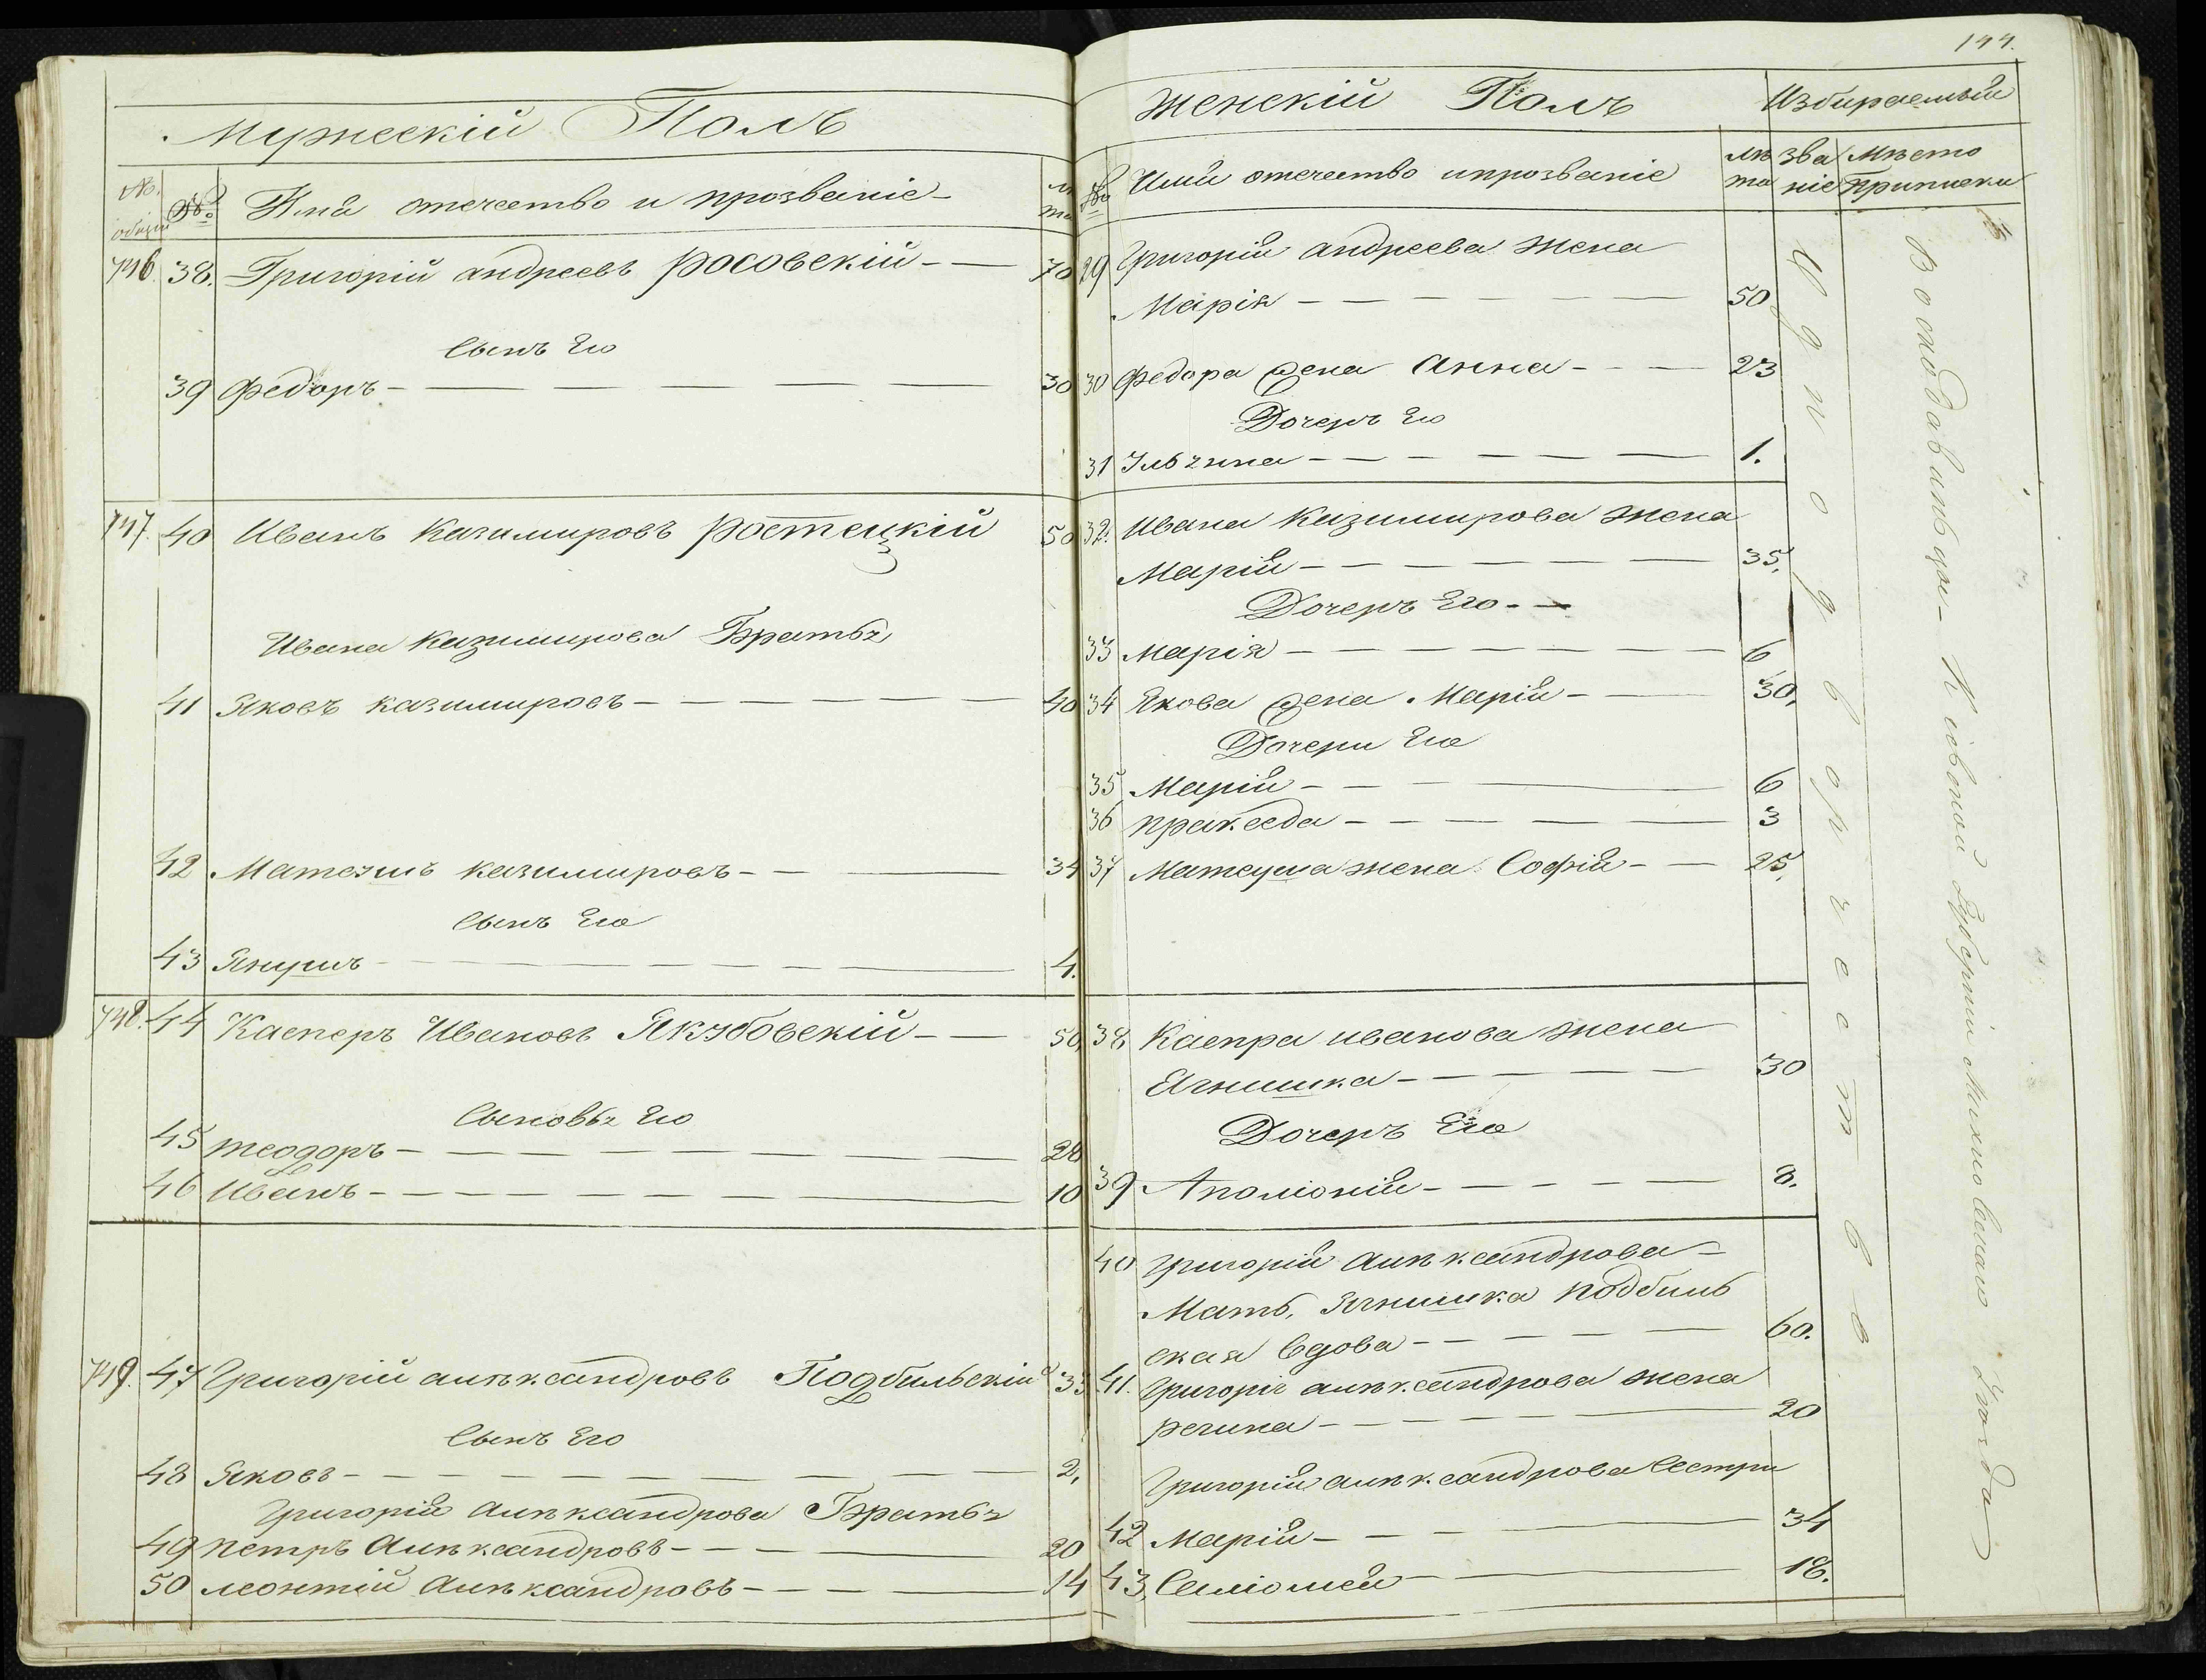 Мужескій Полъ
№ общій
№ Имя отечество и прозваніе
746. 38. Григорій андреевъ росовскій 70
Сынъ Его
39 Федоръ 30
747. 40 Иванъ Казимировъ ростецкій 50
Ивана Казимирова Братья
41 Яковъ казимировъ 40
42 Матеушъ казимировъ 34
Сынъ Его
43 Янушъ 4.
748. 44 Касперъ Ивановъ Якубовскій 50,
Сыновья Его
45 теодоръ 20
46 Иванъ 10
749. 47 Григорій алѣксандровъ Подбильскій 35
Сынъ Его
48 Яковъ 2,
Григорія Алѣксандрова Братья
49 петръ Алѣксандровъ 20
50 леонтій Алѣксандровъ 14
144.
Женскій Полъ Избираемый
№ Имя отечество ипрозваніе лѣта званіе Мѣсто Приписки
29 Григорія андреева жена
Марія 50
30 Федора жена Анна 23
Дочеръ Его
31 Ульяна 1.
32. Ивана Казимирова жена
Марія 35,
Дочеръ Его
33 Марія 6
34 Якова жена Марія 30,
Дочери Его
35 Марія 6
36 пракседа 3
37 Матеуша жена Софія 25,
38, Каспра иванова жена
Ягнишка 30
Дочеръ Его
39 Аполіонія 8.
40 Григорія Алѣксандрова
Мать, Ягнишка подбиль
ская вдова 60.
41. Григорія алѣксандрова жена
регина 20
Григорія алѣксандрова Сестри
42 Марія 34
43, Саліомея 18.
Однодворчество
Вотовдавитьца Кіовской Губерніи Махновскаго уезда